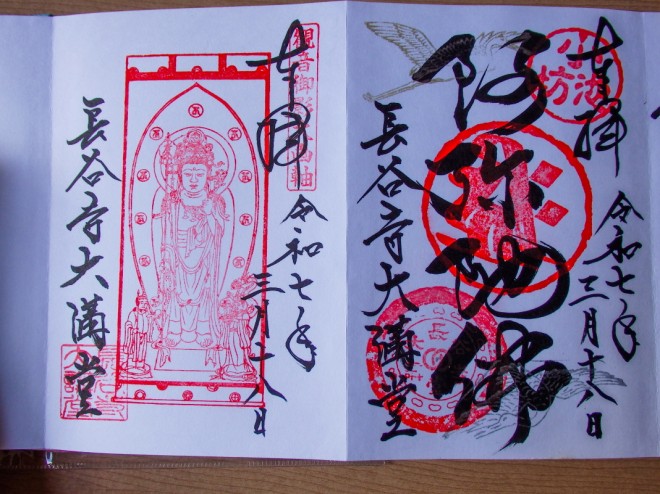 奉拝
令和七年
三月十八日
小池坊
阿弥陀佛
長谷寺大講堂
奉拝
令和七年
三月十八日
長谷寺大講堂